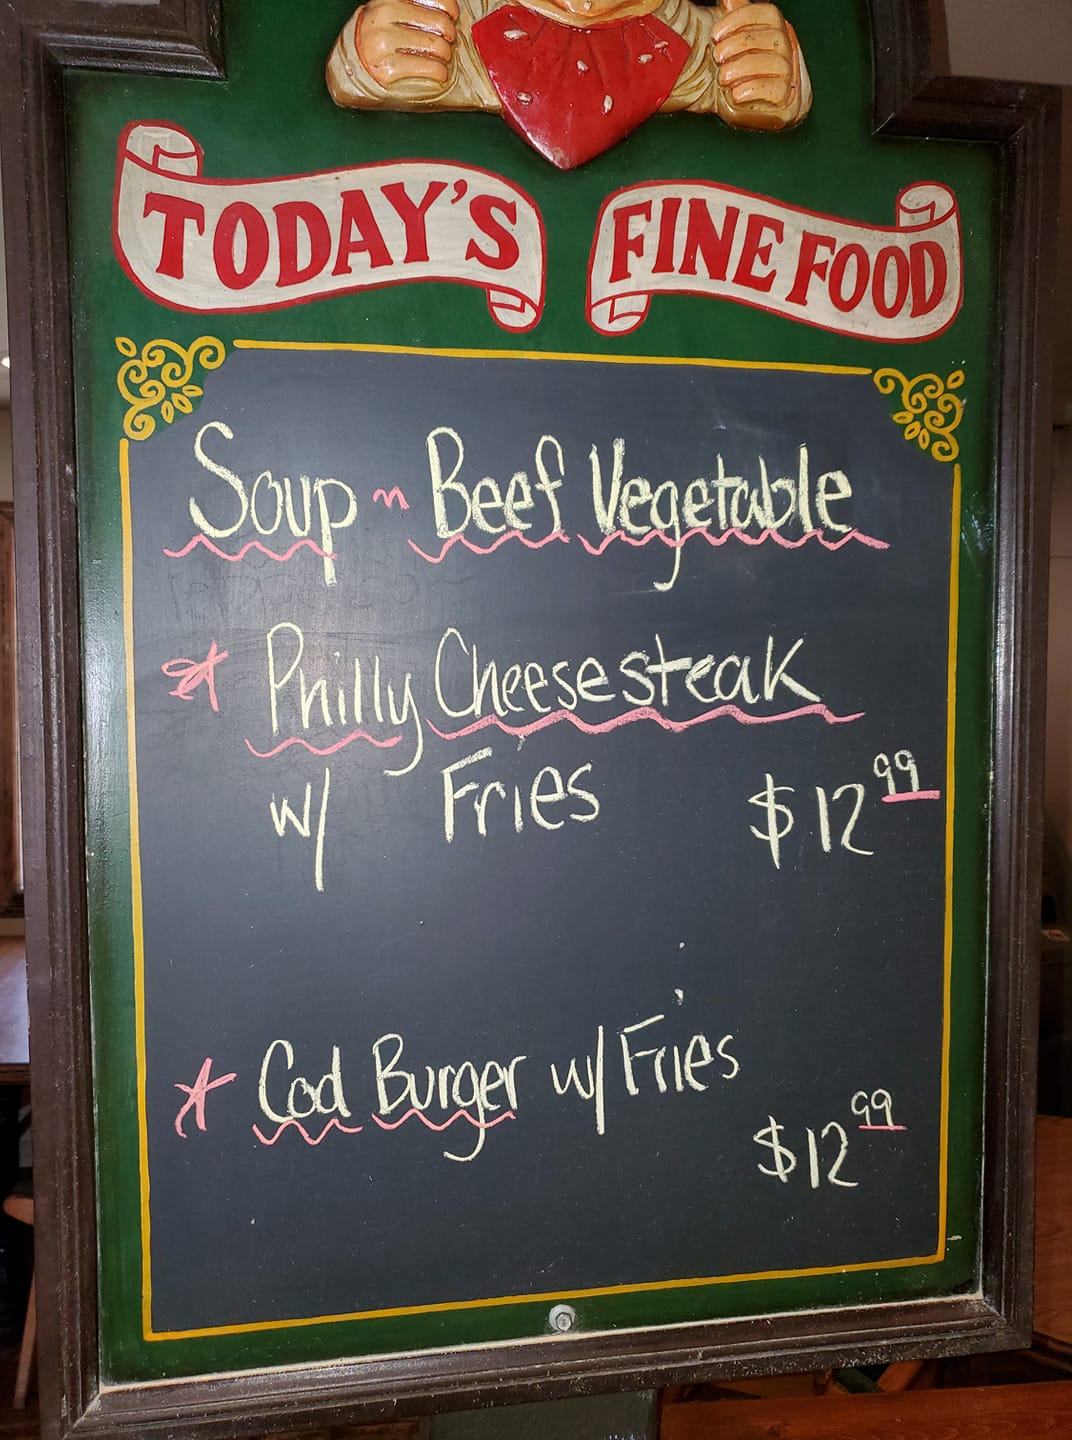 TODAY'S FINE FOOD
Soup ~ Beef Vegetable
* Philly Cheesesteak
w/ Fries $12.99
* Cod Burger w/ Fries
$12.99